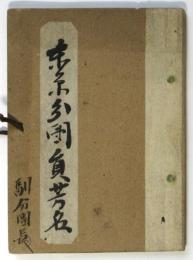 東京分團員芳名
副分團長